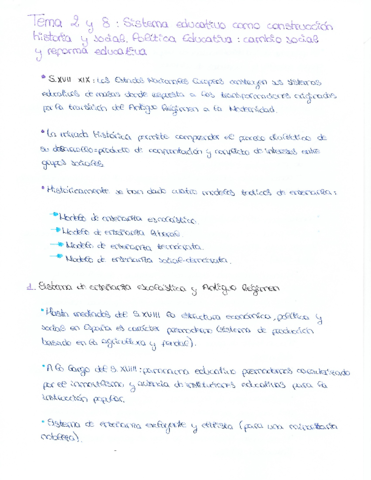 Tema 2 y 8: Sistema educativo como construcción
histórica y social. Política Educativa: cambio social
y reforma educativa
• S.XVIII XIX: Los Estados Nacionales Europeos construyen sus sistemas
educativos de masas dando respuesta a las transformaciones originadas
por la transición del Antiguo Régimen a la Modernidad.
• La mirada histórica permite comprender el proceso dialéctico de
su desarrollo: producto de confrontación y conflicto de intereses entre
grupos sociales
• Históricamente se han dado cuatro modelos teóricos de enseñanza:
Modelo de enseñanza escolástica.
Modelo de enseñanza liberal
Modelo de enseñanza tecnócrata.
Modelo de enseñanza socialdemócrata.
1. Sistema de enseñanza escolástica y Antiguo Régimen
• Hasta mediados del S.XVIII la estructura económica, política y
social en España es carácter premoderno (sistema de producción
basado en la agricultura y feudal).
• A lo largo del S.XVIII: panorama educativo premoderno caracterizado
por el inmovilismo y ausencia de instituciones educativas para la
instrucción popular.
• Sistema de enseñanza excluyente y elitista (para una minoritaria
nobleza).